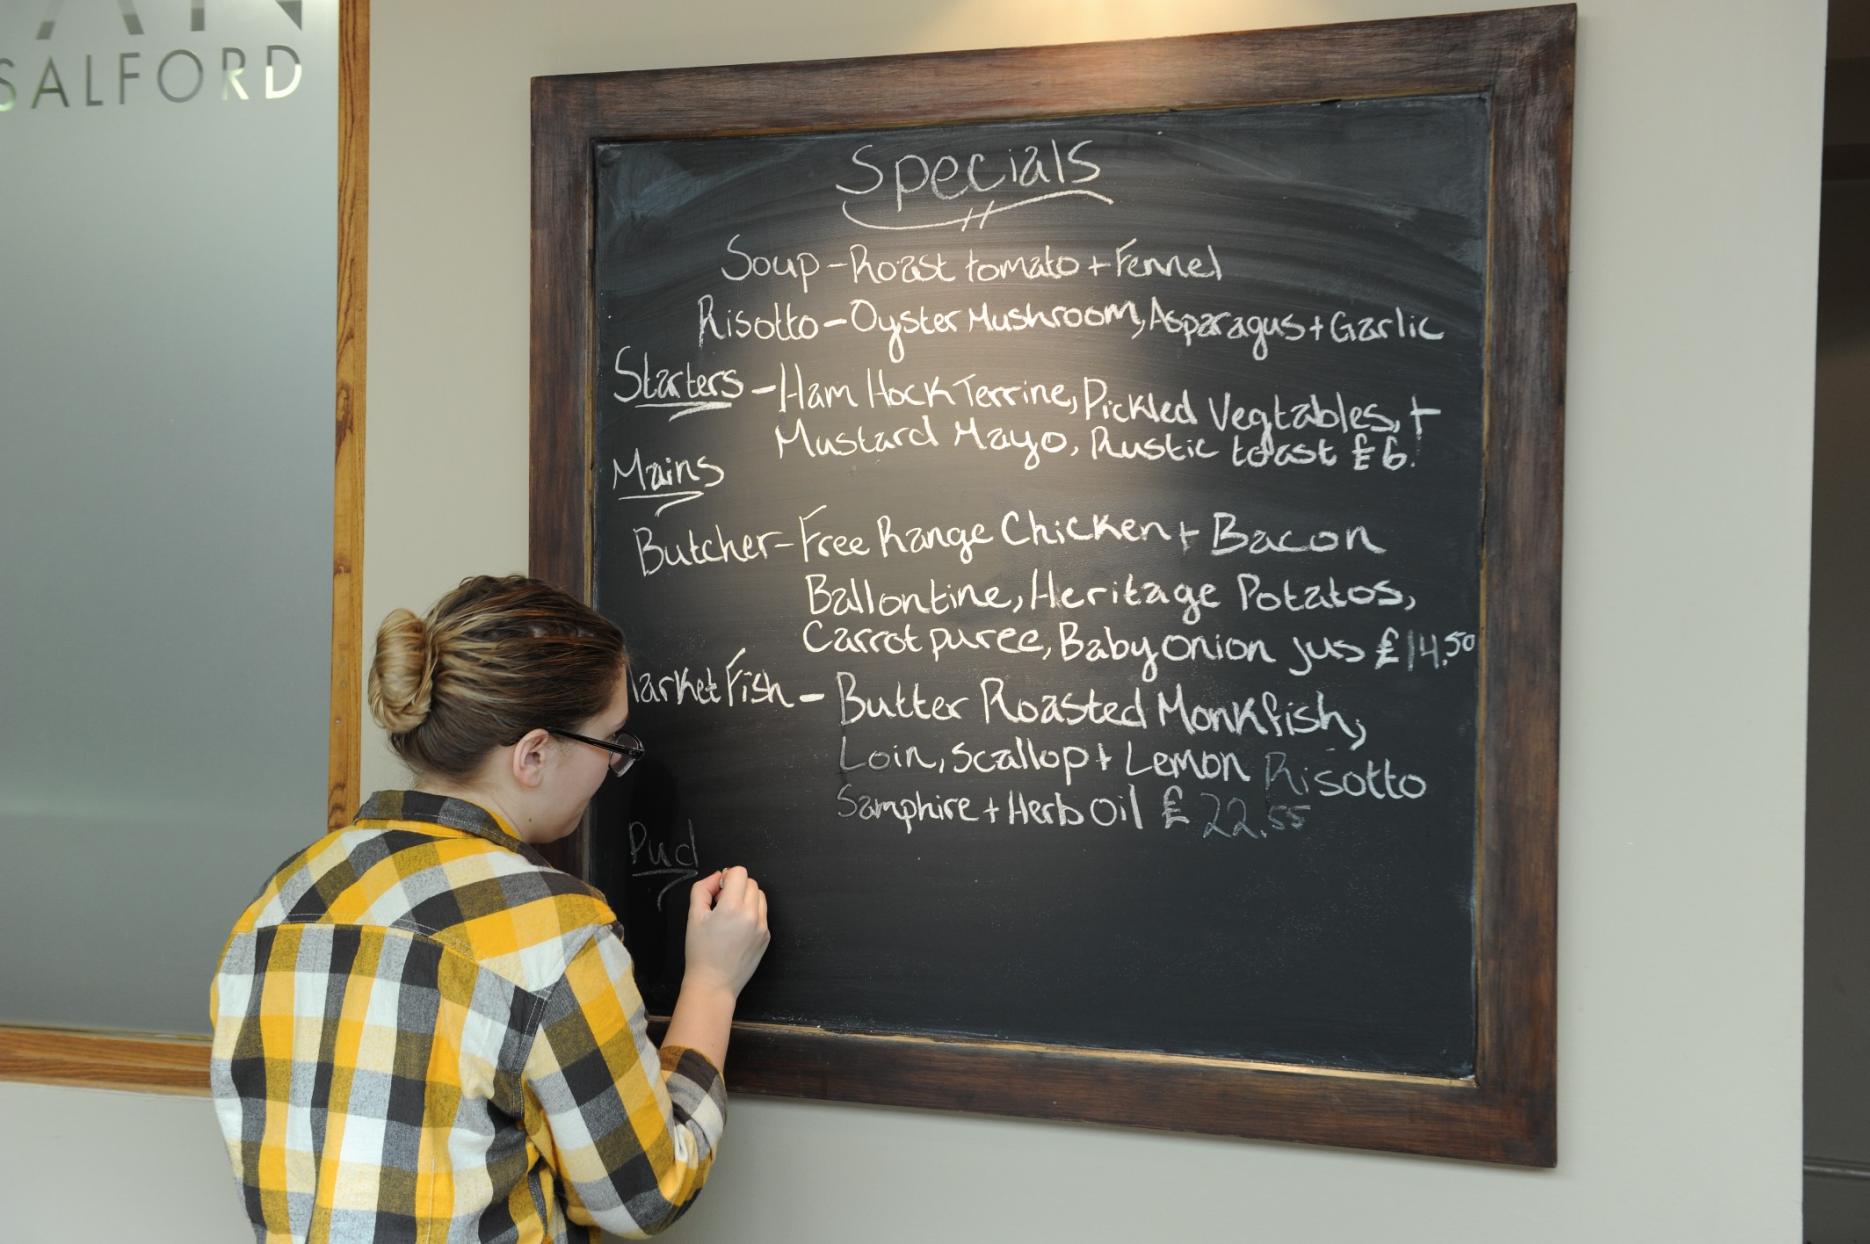 SALFORD
Specials
Soup - Roast tomato + Fennel
Risotto - Oyster Mushroom, Asparagus + Garlic
Starters - Ham Hock Terrine, Pickled Vegtables, +
Mustard Mayo, Rustic toast £6.
Mains
Butcher - Free Range Chicken + Bacon
Ballontine, Heritage Potatos,
Carrot puree, Baby onion jus £14.50
arket Fish - Butter Roasted Monkfish,
Loin, Scallop + Lemon Risotto
Samphire + Herb Oil £22.55
Pud